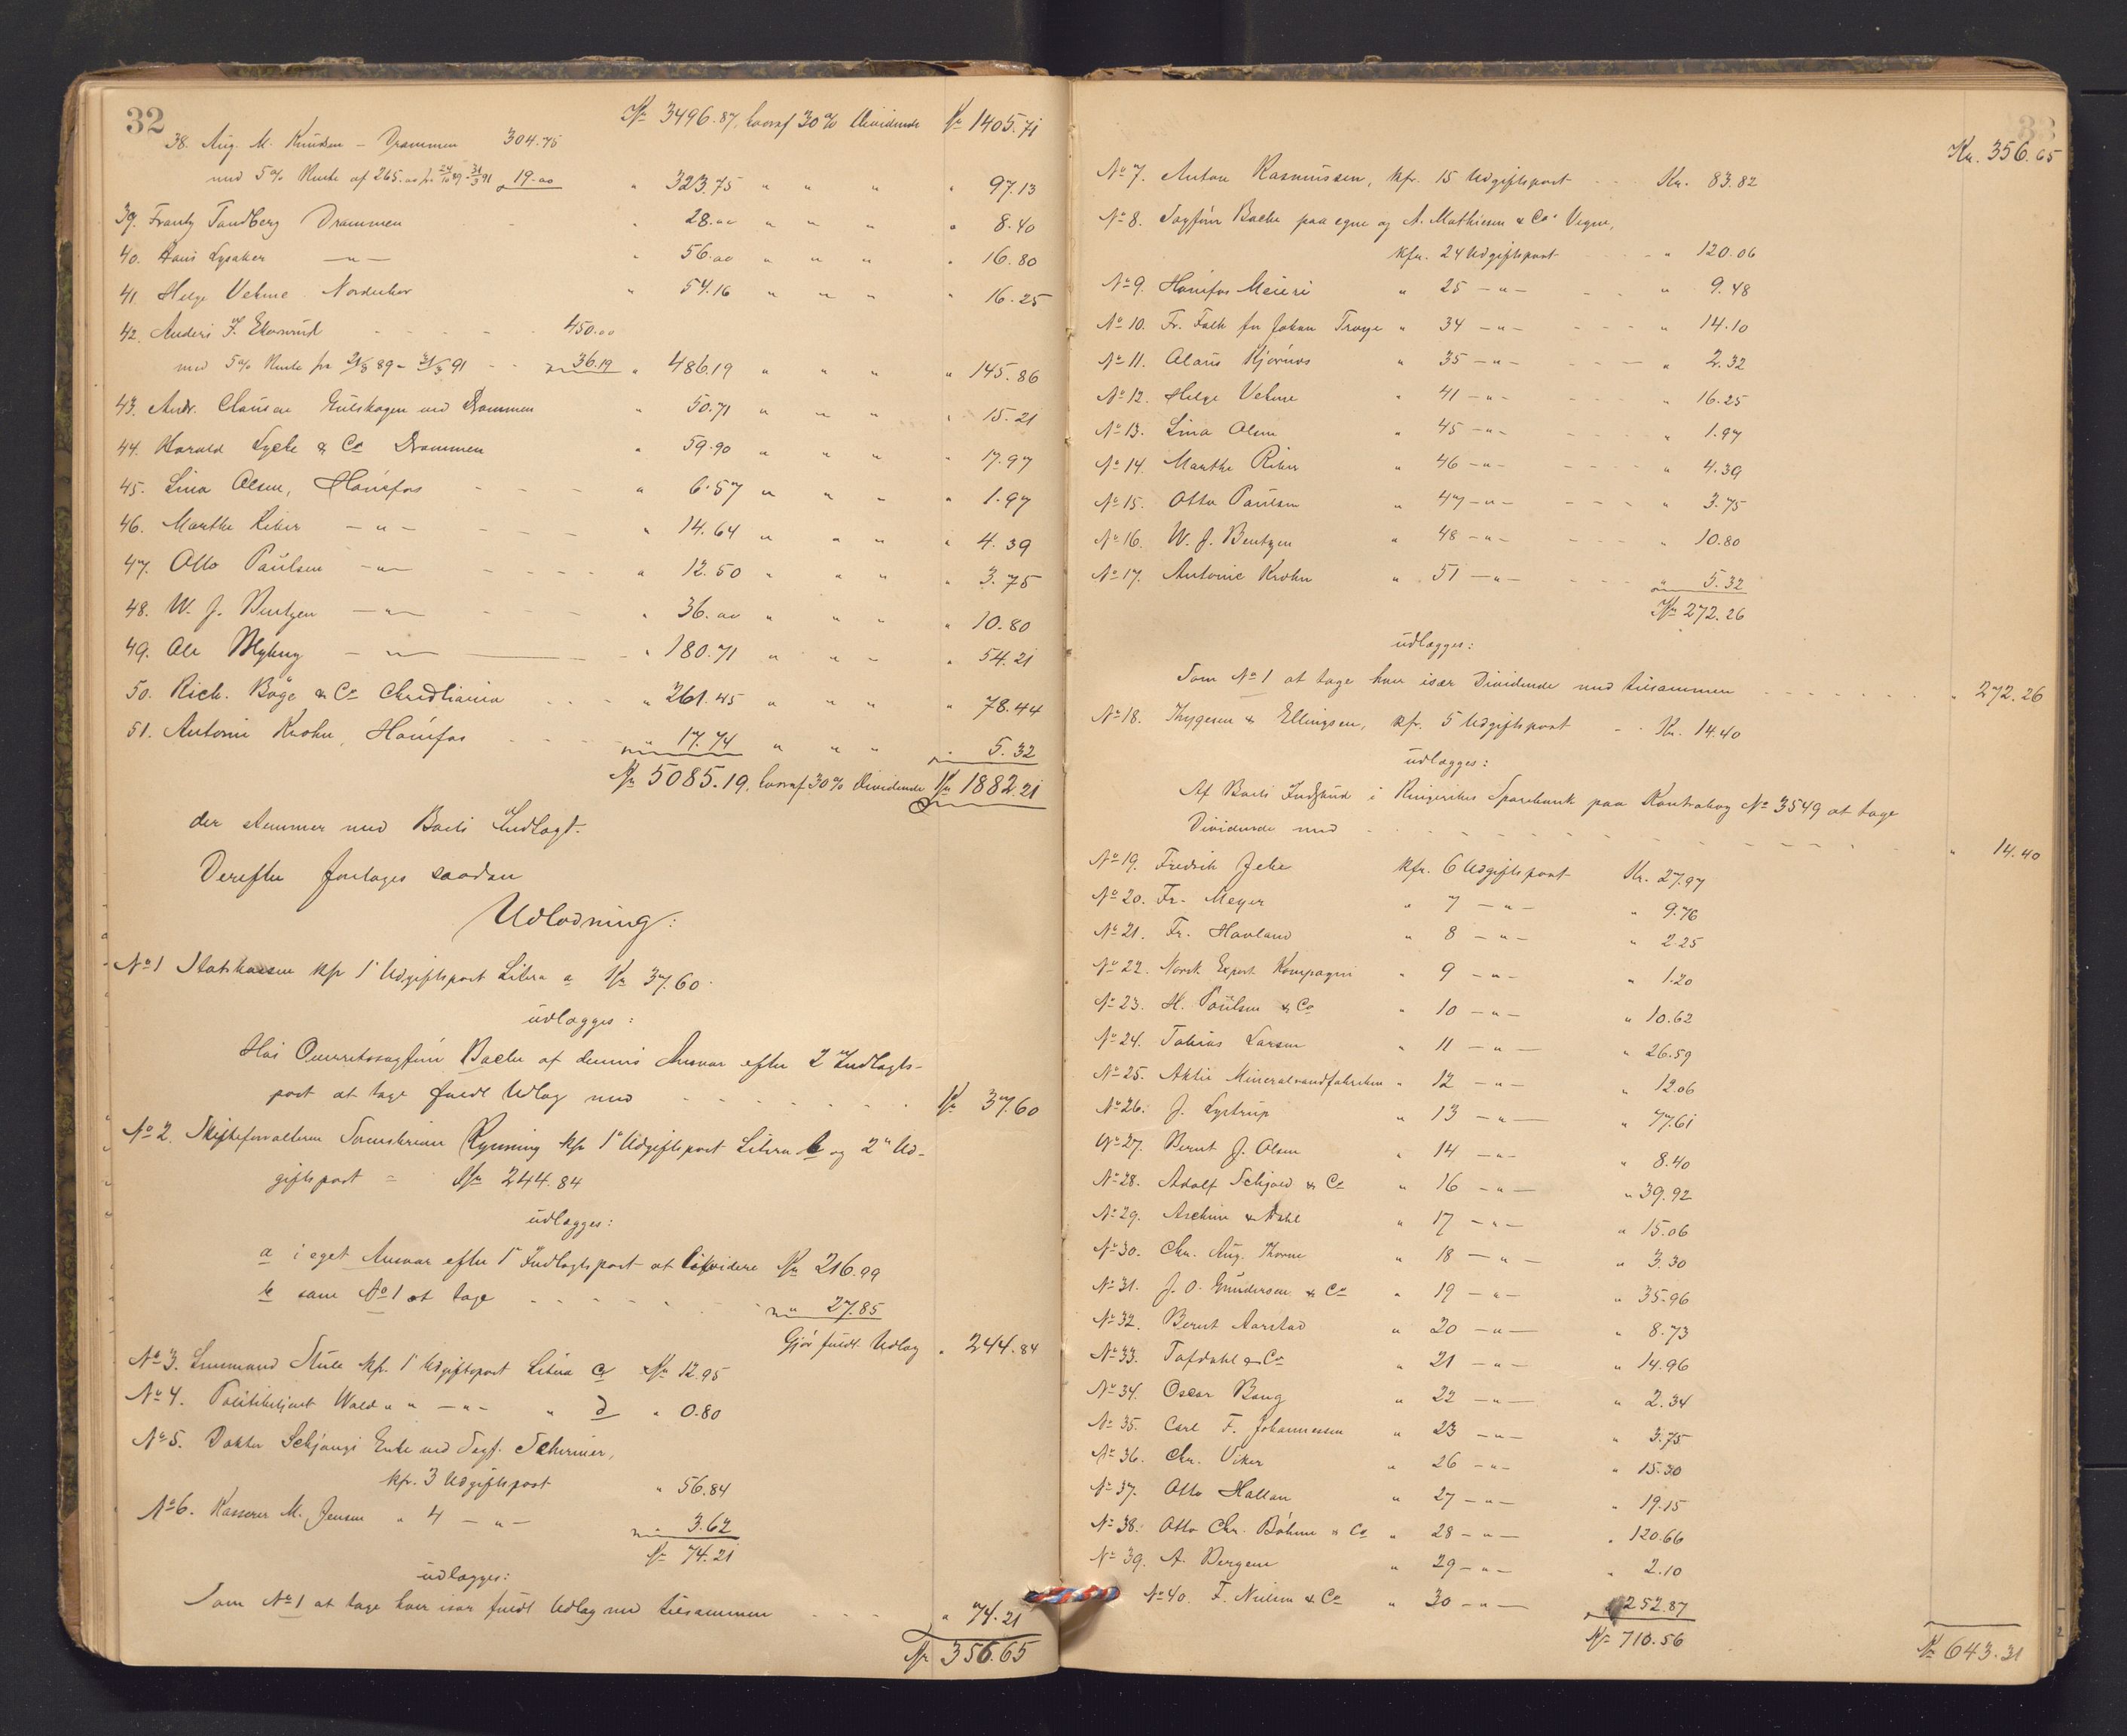 32
Kr 3496.87, hvoraf 30% Dividende Kr 1405.71
38. Aug. M. Knudsen - Drammen 304.75
med 5% Rente af 265.00 fra 24/10 89 - 31/3 91 " 19.00 " 323.75 " " " " 97.13
39. Frantz Tandberg Drammen " 28.00 " " " " 8.40
40. Hans Lysaker —"— " 56.00 " " " " 16.80
41 Helge Vehme Norderhov " 54.16 " " " " 16.25
42. Anders J. 450.00
med 5% Rente fra 21/8 89 - 31/3 91 - - " 36.19 " 486.19 " " " " 145.86
43. Andr. Clausen Gulskogen ved Drammen " 50.71 " " " " 15.21
44. Harald Lyche & Co Drammen " 59.90 " " " " 17.97
45. Lina Olsen, Hönefos - - - " 6.57 " " " " 1.97
46. Marthe Riker —"— - - - " 14.64 " " " " 4.39
47. Otto Paulsen —"— - - - - " 12.50 " " " " 3.75
48. W. J. Bentzen —"— - - - " 36.00 " " " " 10.80
49. Ole Myhny —"— " 180.71 " " " " 54.21
50. Rich. Boge & Co Christiania - - - " 261.45 " " " " 78.44
51. Antonie Krohn, Hönefos - - - " 17.74 " " " " 5.32
Kr 5085.19, hvoraf 30% Dividende Kr 1882.21
der stemmer med Boets Indtægt.
Derefter foretages saadan
Udlodning:
No 1 Statskassen kfr 1' Udgiftspost Litra a Kr 37.60
udlægges:
Hos Overretssagförer Bache af dennes Ansvar efter 2 Indtægts-
post at tage fuldt Udlæg med - - - - - - Kr 37.60
No 2. Skifteforvalteren Sorenskriver Rynning kfr 1' Udgiftspost Litra b og 2' Ud-
giftspost = Kr 244.84
udlægges:
a i eget Ansvar efter 1' Indtægtspost at likvidere Kr 216.99
b som No 1 at tage - - - - - - " 27.85
Gjör fuldt Udlæg " 244.84
No 3. Lensmand kfr. 1' Udgiftspost Litra c Kr 12.95
No 4. Politibetjent Wold " " —"— " d " 0.80
No 5. Doktor Schjongs Enke ved Sagf. Schermer,
kfr. 3 Udgiftspost " 56.84
No 6. Kasserer M. Jensen " 4 —"— " 3.62
Kr 74.21
udlægges:
Som No 1 at tage hver især fuldt Udlæg med tilsammen - - - " 74.21
Kr 356.65
33
Kr. 356.65
No 7. Anton Rasmussen, kfr. 15 Udgiftspost - - Kr. 83.82
No 8. Sagförer Bache paa egne og A. Mathiesen & Co' Vegne,
kfr. 24 Udgiftspost - - - - " 120.06
No 9. Hönefos Meieri " 25 —"— - - " 9.48
No 10. Fr. Falk for Johan Troye " 34 —"— - - - " 14.10
No 11. Olaus Kjörnaas " 35 —"— - - — " 2.32
No 12. Helge Vehme " 41 —"— - - - " 16.25
No 13. Lina Olsen " 45 —"— - - - " 1.97
No 14. Marthe Riker " 46 —"— - - - - " 4.39
No 15. Otto Paulsen " 47 —"— - - - " 3.75
No 16. W. J. Bentzen " 48 —"— - - - " 10.80
No 17. Antonie Krohn " 51 —"— - - - " 5.32
Kr 272.26
udlægges:
Som No 1 at tage hver især Dividende med tilsammen - - - - - - - " 272.26
No 18. Thygesen & Ellingsen, kfr. 5 Udgiftspost - - Kr. 14.40
udlægges:
Af Boets Indskud i Ringerikes Sparebank paa Kontrabog No 3549 at tage
Dividende med - - - - - - - - - - " 14.40
No 19. Fredrik Jebe kfr. 6 Udgiftspost Kr. 27.97
No 20. Fr. Meyer " 7 —"— " 9.76
No 21. Fr. Hovland " 8 —"— " 2.25
No 22. Norsk Export Kompagni " 9 —"— " 1.20
No 23. H. Poulsen & Co " 10 —"— " 10.62
No 24. Tobias Larsen " 11 —"— " 26.59
No 25. Aktie Mineralvandfabriken " 12 —"— " 12.06
No 26. J. Lystrup " 13 —"— " 77.61
No 27. Bernt J. Olsen " 14 —"— " 8.40
No 28. Adolf Schjold & Co " 16 —"— " 39.92
No 29. Aschim & Dahl " 17 —"— " 15.06
No 30. Chr. Aug. Thorne " 18 —"— " 3.30
No 31. J. O. Gundersen & Co " 19 —"— " 35.96
No 32. Bernt Aarstad " 20 —"— " 8.73
No 33. Tofdahl & Co " 21 —"— " 14.96
No 34. Oscar Bang " 22 —"— " 2.34
No 35. Carl F. Johannessen " 23 —"— " 3.75
No 36. Chr. Viker " 26 —"— " 15.30
No 37. Otto Hallan " 27 —"— " 19.15
No 38. Otto Chr. Böhme & Co " 28 —"— " 120.66
No 39. A. Bergene " 29 —"— " 2.10
No 40. F. Nielsen & Co " 30 —"— " 252.87
Kr 710.56
Kr 643.31